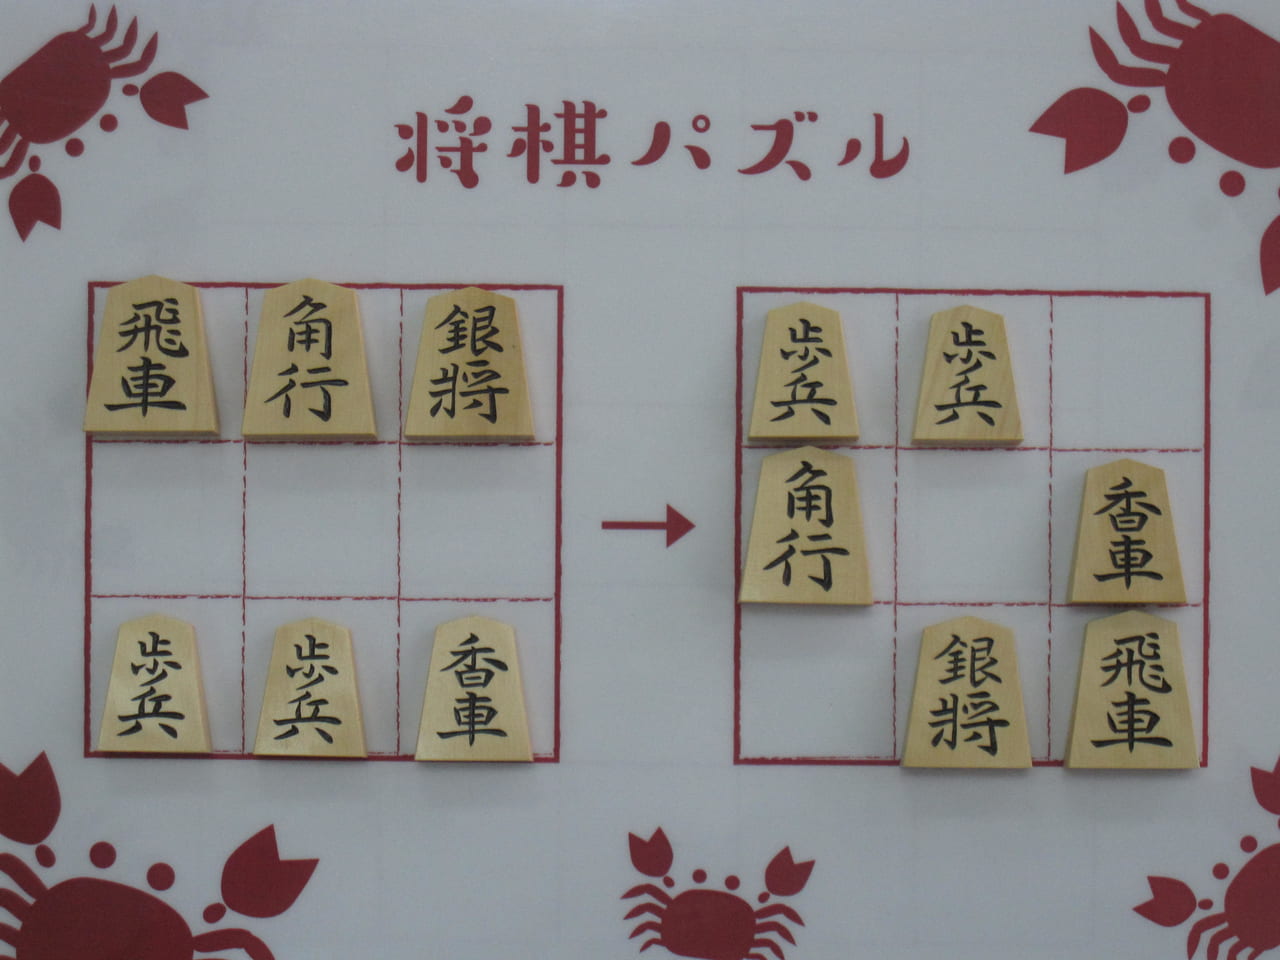 将棋パズル
飛車 角行 銀将
歩兵 歩兵 香車
歩兵 歩兵
角行 香車
銀将 飛車